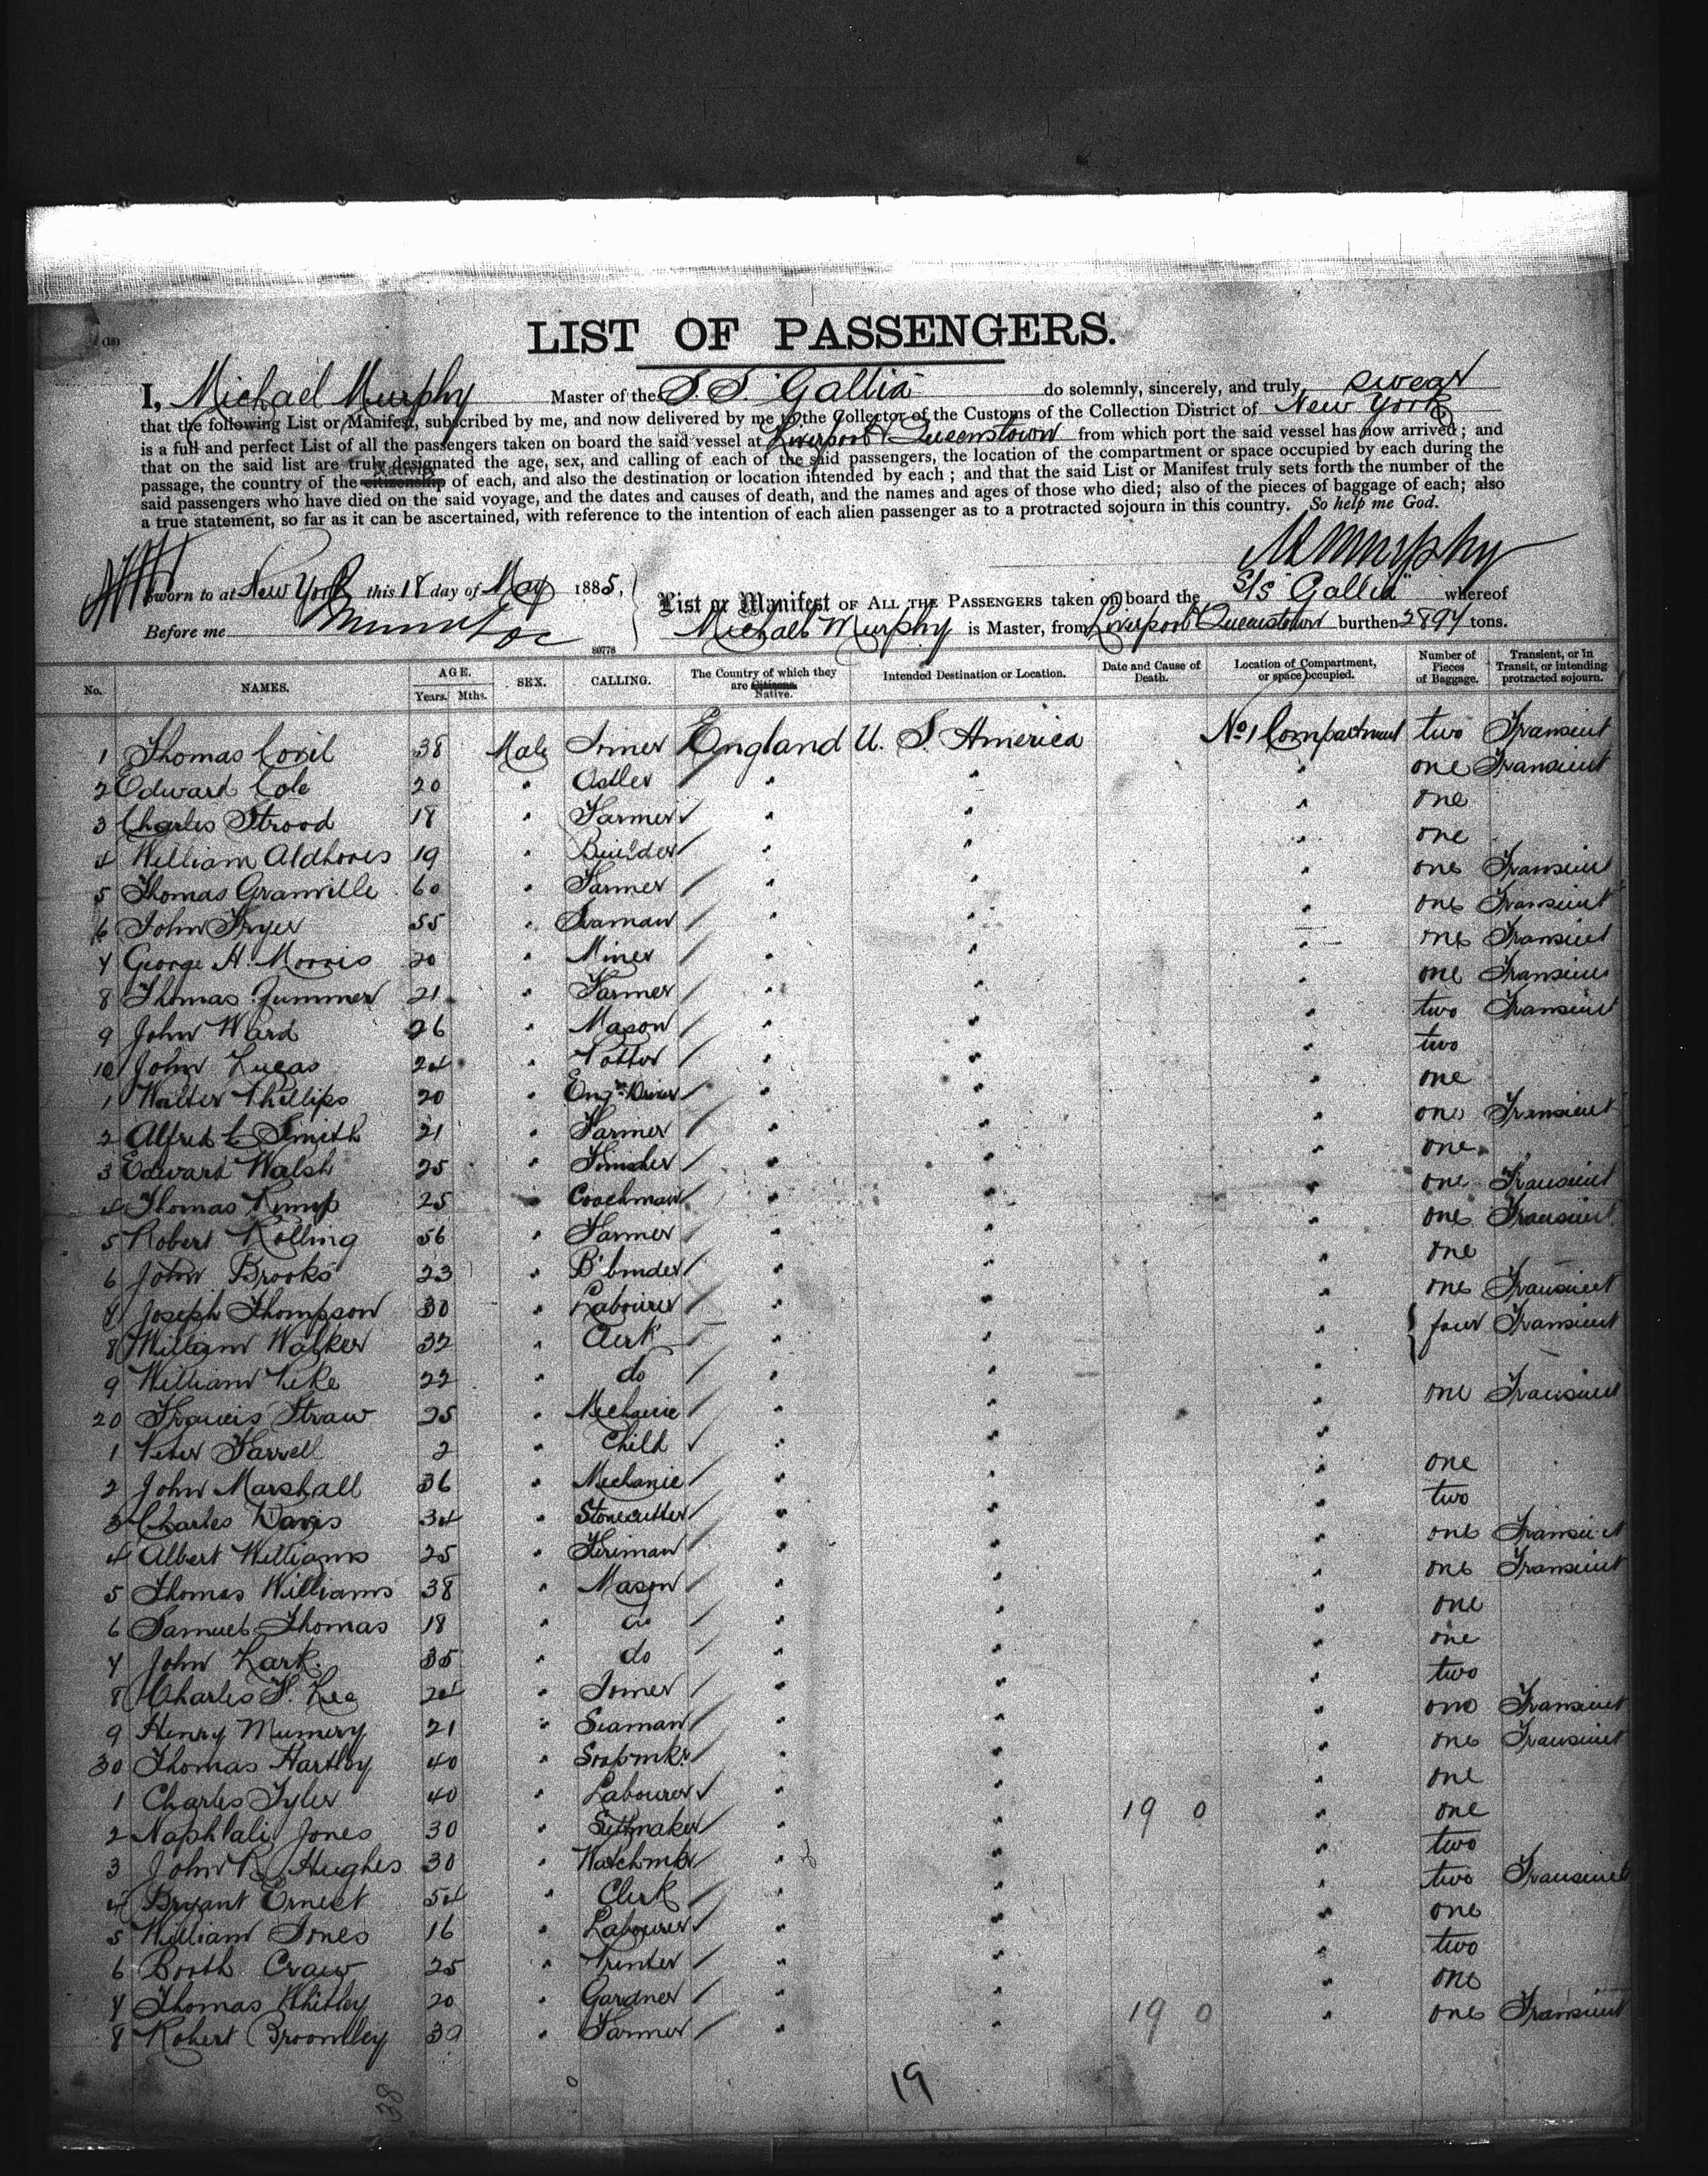 (18)
LIST OF PASSENGERS.
I, Michael Murphy Master of the S. S. "Gallia" do solemnly, sincerely, and truly swear
that the following List or Manifest, subscribed by me, and now delivered by me to the Collector of the Customs of the Collection District of New York
is a full and perfect List of all the passengers taken on board the said vessel at Liverpool & Queenstown from which port the said vessel has now arrived; and
that on the said list are truly designated the age, sex, and calling of each of the said passengers, the location of the compartment or space occupied by each during the
passage, the country of the citizenship Nativity of each, and also the destination or location intended by each; and that the said List or Manifest truly sets forth the number of the
said passengers who have died on the said voyage, and the dates and causes of death, and the names and ages of those who died; also of the pieces of baggage of each; also
a true statement, so far as it can be ascertained, with reference to the intention of each alien passenger as to a protracted sojourn in this country. So help me God.
M Murphy
Sworn to at New York this 18 day of May 1885,
Before me
List or Manifest OF ALL THE PASSENGERS taken on board the S/S "Gallia" whereof
Michael Murphy is Master, from Liverpool & Queenstown burthen 2897 tons.
80778
No. NAMES. AGE. Years. Mths. SEX. CALLING. The Country of which they are Citizens. Native. Intended Destination or Location. Date and Cause of Death. Location of Compartment, or space occupied. Number of Pieces of Baggage. Transient, or in Transit, or intending protracted sojourn.
1 Thomas 38 Male Joiner England U. S. America No 1 Compartment two Transient
2 Edward Cole 20 " Ostler / " " " one Transient
3 Charles Strood 18 " Farmer / " " " one
4 William 19 " Builder / " " " one
5 Thomas Granville 60 " Farmer / " " " one Transient
6 John Fryer 55 " Seaman / " " " one Transient
7 George H. Morris 20 " Miner / " " " one Transient
8 Thomas 21 " Farmer / " " " one Transient
9 John Ward 26 " Mason / " " " two Transient
10 John Lucas 24 " Potter / " " " two
1 Walter Phillips 20 " Engn Driver / " " " one
2 Alfred C Smith 21 " Farmer / " " " one Transient
3 Edward Walsh 25 " Finisher / " " " one
4 Thomas Kemp 25 " Coachman / " " " one Transient
5 Robert Rolling 56 " Farmer / " " " one Transient
6 John Brooks 23 " B'binder / " " " one
7 Joseph Thompson 30 " Labourer / " " " one Transient
8 William Walker 32 " Clerk / " " " } four Transient
9 William Pike 22 " do / " " "
20 Francis Straw 25 " Mechanic / " " " one Transient
1 Peter Farrell 2 " Child / " " "
2 John Marshall 36 " Mechanic / " " " one
3 Charles Davis 34 " Stonecutter / " " " two
4 Albert Williams 25 " Fireman / " " " one Transient
5 Thomas Williams 38 " Mason / " " " one Transient
6 Samuel Thomas 18 " do / " " " one
7 John Lark 35 " do / " " " one
8 Charles F. Lee 24 " Joiner / " " " two
9 Henry Mumery 21 " Seaman / " " " one Transient
30 Thomas Hartley 40 " Soapmkr / " " " one Transient
1 Charles Tyler 40 " Labourer / " " " one
2 Naphtali Jones 30 " / " " 19 0 " one
3 John R. Hughes 30 " Watchmkr / " " " two
4 Bryant Ernest 54 " Clerk / " " " two Transient
5 William Jones 16 " Labourer / " " " one
6 Booth Craw 25 " Printer / " " " two
7 Thomas Whitley 20 " Gardner / " " " one
8 Robert Broomley 30 " Farmer / " " 19 0 " one Transient
38
19